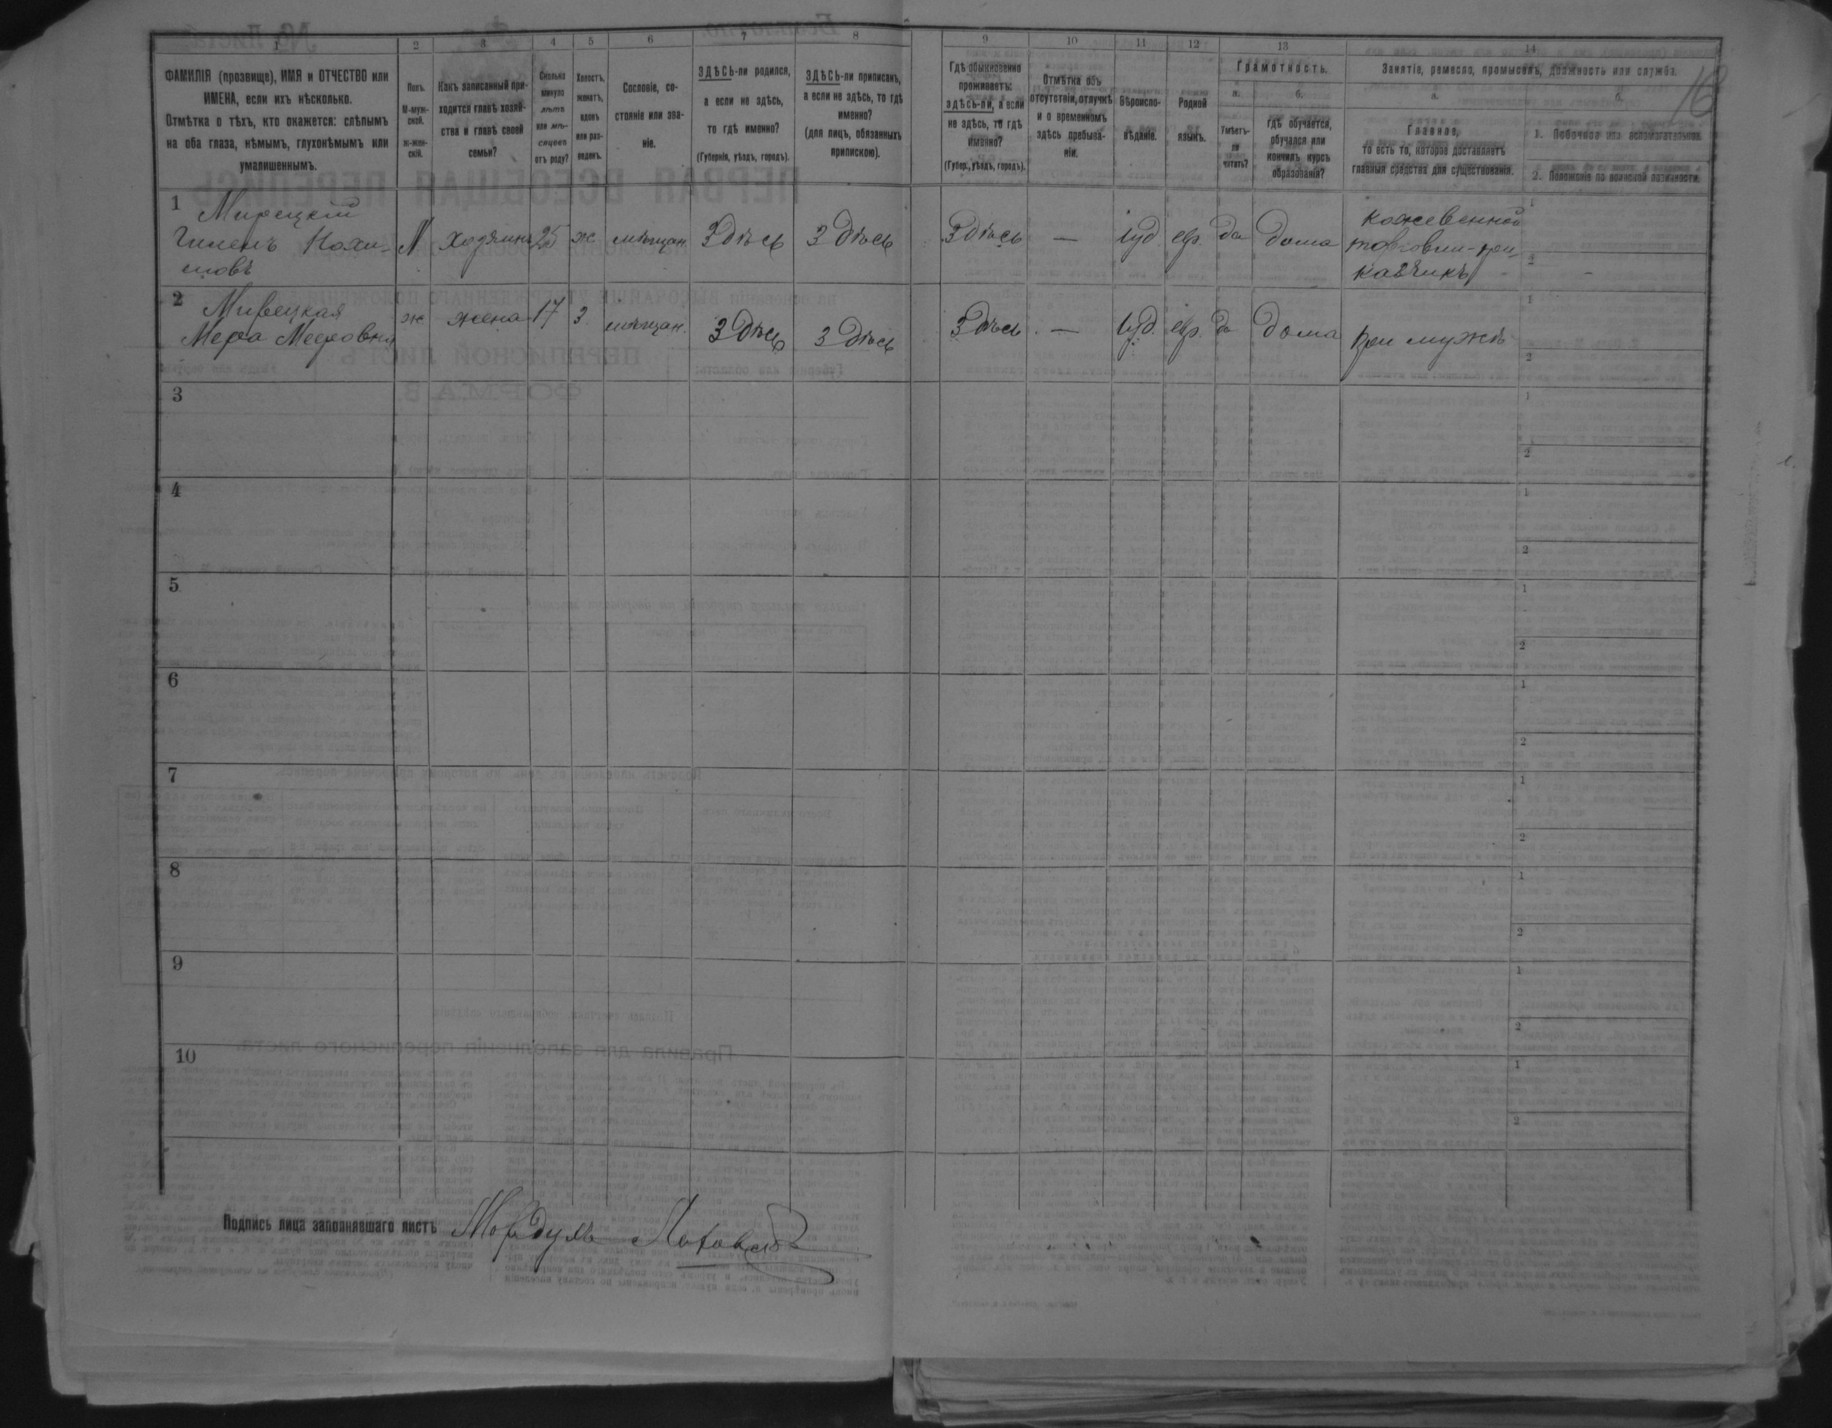 16
1 2 3 4 5 6 7 8 9 10 11 12 13 14
ФАМИЛІЯ (прозвище), ИМЯ и ОТЧЕСТВО или
ИМЕНА, если ихъ нѣсколько.
Отмѣтка о тѣхъ, кто окажется: слѣпымъ
на оба глаза, нѣмымъ, глухонѣмымъ или
умалишеннымъ.
Полъ.
М-муж-
ской.
Ж-жен-
скій.
Какъ записанный при-
ходится главѣ хозяй-
ства и главѣ своей
семьи?
Сколько
минуло
лѣтъ
или мѣ-
сяцевъ
отъ роду?
Холостъ,
женатъ,
вдовъ
или раз-
веденъ.
Сословіе, со-
стояніе или зва-
ніе.
ЗДѢСЬ-ли родился,
а если не здѣсь,
то гдѣ именно?
(Губернія, уѣздъ, городъ).
ЗДѢСЬ-ли приписанъ,
а если не здѣсь, то гдѣ
именно?
(для лицъ, обязанныхъ
припискою).
Гдѣ обыкновенно
проживаетъ:
здѣсь-ли, а если
не здѣсь, то гдѣ
именно?
(Губер., уѣздъ, городъ).
Отмѣтка объ
отсутствіи, отлучкѣ
и о временномъ
здѣсь пребыва-
ніи.
Вѣроиспо-
вѣданіе.
Родной
языкъ.
Грамотность.
а.
Умѣетъ-
ли
читать?
б.
гдѣ обучается,
обучался или
кончилъ курсъ
образованія?
Занятіе, ремесло, промыселъ, должность или служба.
а.
Главное,
то есть то, которое доставляетъ
главныя средства для существованія.
б.
1. Побочное или вспомогательное.
2. Положеніе по воинской повинности.
1
Гилелъ
М хозяинъ 25 ж мѣщан. Здѣсь Здѣсь Здѣсь — іуд евр. да дома
кожевенной
торговли-при-
казчикъ
1
2 -
2 Мирецкая
Мера Мееровна
ж жена 17 з. мѣщан. Здѣсь Здѣсь Здѣсь — іуд. евр. да дома при мужѣ
1
2
3
1
2
4
1
2
5
1
2
6
1
2
7
1
2
8
1
2
9
1
2
10
1
2
Подпись лица заполнявшаго листъ